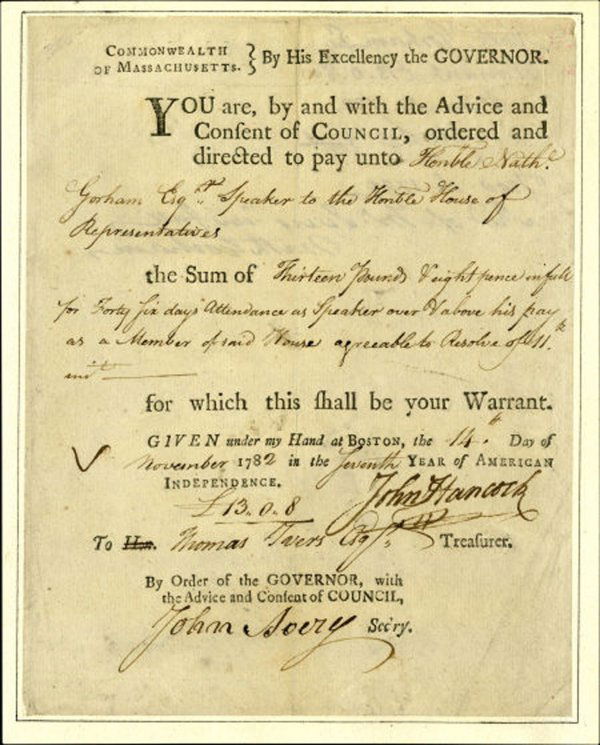 COMMONWEALTH OF MASSACHUSETTS. } By His Excellency the GOVERNOR.
YOU are, by and with the Advice and
Conſent of COUNCIL, ordered and
directed to pay unto Honble Nathl.
Gorham Esqr. Speaker to the Honble House of
Representatives
the Sum of Thirteen Pounds & eight pence in full
for Forty six days Attendance as Speaker over & above his pay
as a Member of said House agreeable to Resolve of 11th.
inst.
for which this ſhall be your Warrant.
GIVEN under my Hand at BOSTON, the 14th. Day of
November 1782 in the Seventh YEAR of AMERICAN
INDEPENDENCE.
£13.0.8
John Hancock
To Hon. Thomas Ivers Esqr. Treaſurer.
By Order of the GOVERNOR, with
the Advice and Conſent of COUNCIL,
John Avery Sec'ry.